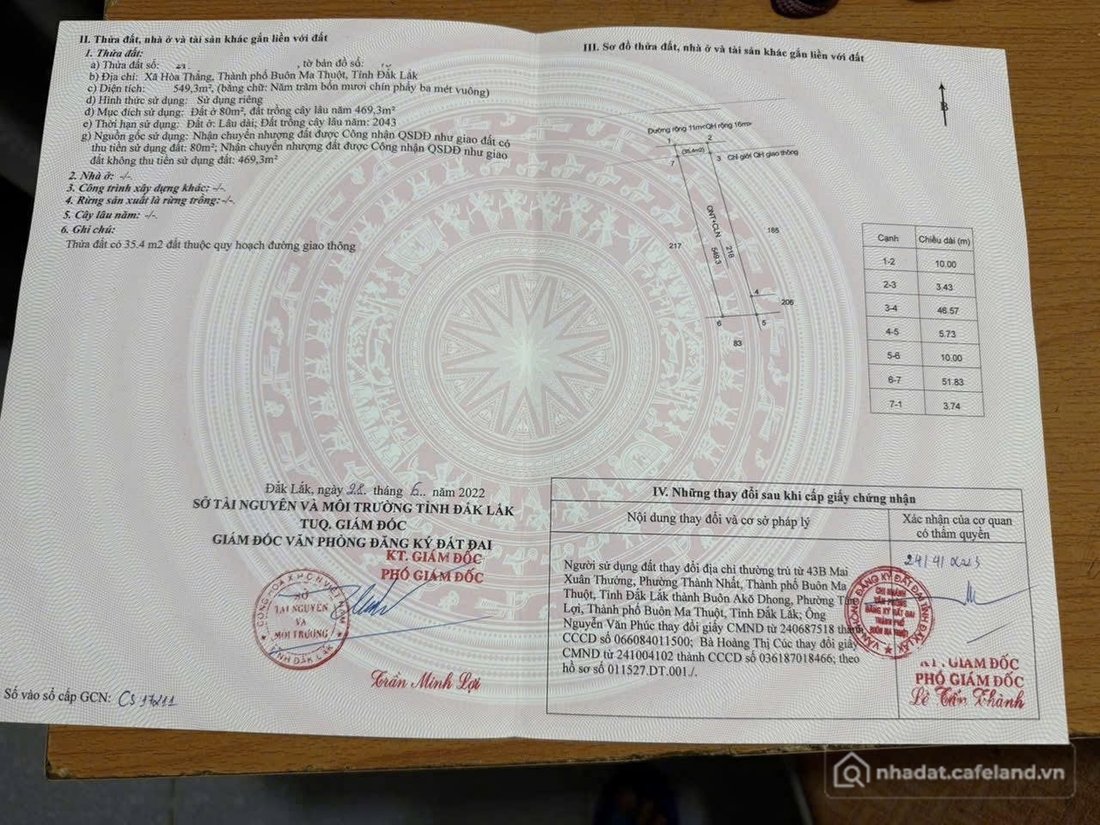 II. Thửa đất, nhà ở và tài sản khác gắn liền với đất
1. Thửa đất:
a) Thửa đất số: , tờ bản đồ số:
b) Địa chỉ: Xã Hòa Thắng, Thành phố Buôn Ma Thuột, Tỉnh Đắk Lắk
c) Diện tích: 549,3m², (bằng chữ: Năm trăm bốn mươi chín phẩy ba mét vuông)
d) Hình thức sử dụng: Sử dụng riêng
đ) Mục đích sử dụng: Đất ở 80m², đất trồng cây lâu năm 469,3m²
e) Thời hạn sử dụng: Đất ở: Lâu dài; Đất trồng cây lâu năm: 2043
g) Nguồn gốc sử dụng: Nhận chuyển nhượng đất được Công nhận QSDĐ như giao đất có
thu tiền sử dụng đất: 80m²; Nhận chuyển nhượng đất được Công nhận QSDĐ như giao
đất không thu tiền sử dụng đất: 469,3m²
2. Nhà ở: -/-
3. Công trình xây dựng khác: -/-.
4. Rừng sản xuất là rừng trồng: -/-.
5. Cây lâu năm: -/-.
6. Ghi chú:
Thửa đất có 35.4 m2 đất thuộc quy hoạch đường giao thông
Đắk Lắk, ngày 28 tháng 6.. năm 2022
SỞ TÀI NGUYÊN VÀ MÔI TRƯỜNG TỈNH ĐẮK LẮK
TUQ. GIÁM ĐỐC
GIÁM ĐỐC VĂN PHÒNG ĐĂNG KÝ ĐẤT ĐAI
KT. GIÁM ĐỐC
PHÓ GIÁM ĐỐC
CỘNG HÒA X.H.C.N VIỆT NAM
SỞ
TÀI NGUYÊN
VÀ
MÔI TRƯỜNG
TỈNH ĐẮK LẮK
Trần Minh Lợi
Số vào sổ cấp GCN: CS 17211
III. Sơ đồ thửa đất, nhà ở và tài sản khác gắn liền với đất
B
Đường rộng 11m<QH rộng 16m>
1 2
(35.4m2)
7 3 Chỉ giới QH giao thông
ONT+CLN
549.3
218
217
185
4
206
6 5
83
Cạnh Chiều dài (m)
1-2 10.00
2-3 3.43
3-4 46.57
4-5 5.73
5-6 10.00
6-7 51.83
7-1 3.74
IV. Những thay đổi sau khi cấp giấy chứng nhận
Nội dung thay đổi và cơ sở pháp lý
Xác nhận của cơ quan
có thẩm quyền
Người sử dụng đất thay đổi địa chỉ thường trú từ 43B Mai
Xuân Thưởng, Phường Thành Nhất, Thành phố Buôn Ma
Thuột, Tỉnh Đắk Lắk thành Buôn Akõ Dhong, Phường Tân
Lợi, Thành phố Buôn Ma Thuột, Tỉnh Đắk Lắk; Ông
Nguyễn Văn Phúc thay đổi giấy CMND từ 240687518 thành
CCCD số 066084011500; Bà Hoàng Thị Cúc thay đổi giấy
CMND từ 241004102 thành CCCD số 036187018466; theo
hồ sơ số 011527.DT.001./.
24/4/2023
VĂN PHÒNG ĐĂNG KÝ ĐẤT ĐAI TỈNH ĐẮK LẮK
CHI NHÁNH
VĂN PHÒNG
ĐĂNG KÝ ĐẤT ĐAI
THÀNH PHỐ
BUÔN MA THUỘT
KT. GIÁM ĐỐC
PHÓ GIÁM ĐỐC
Lê Tấn Thành
nhadat.cafeland.vn